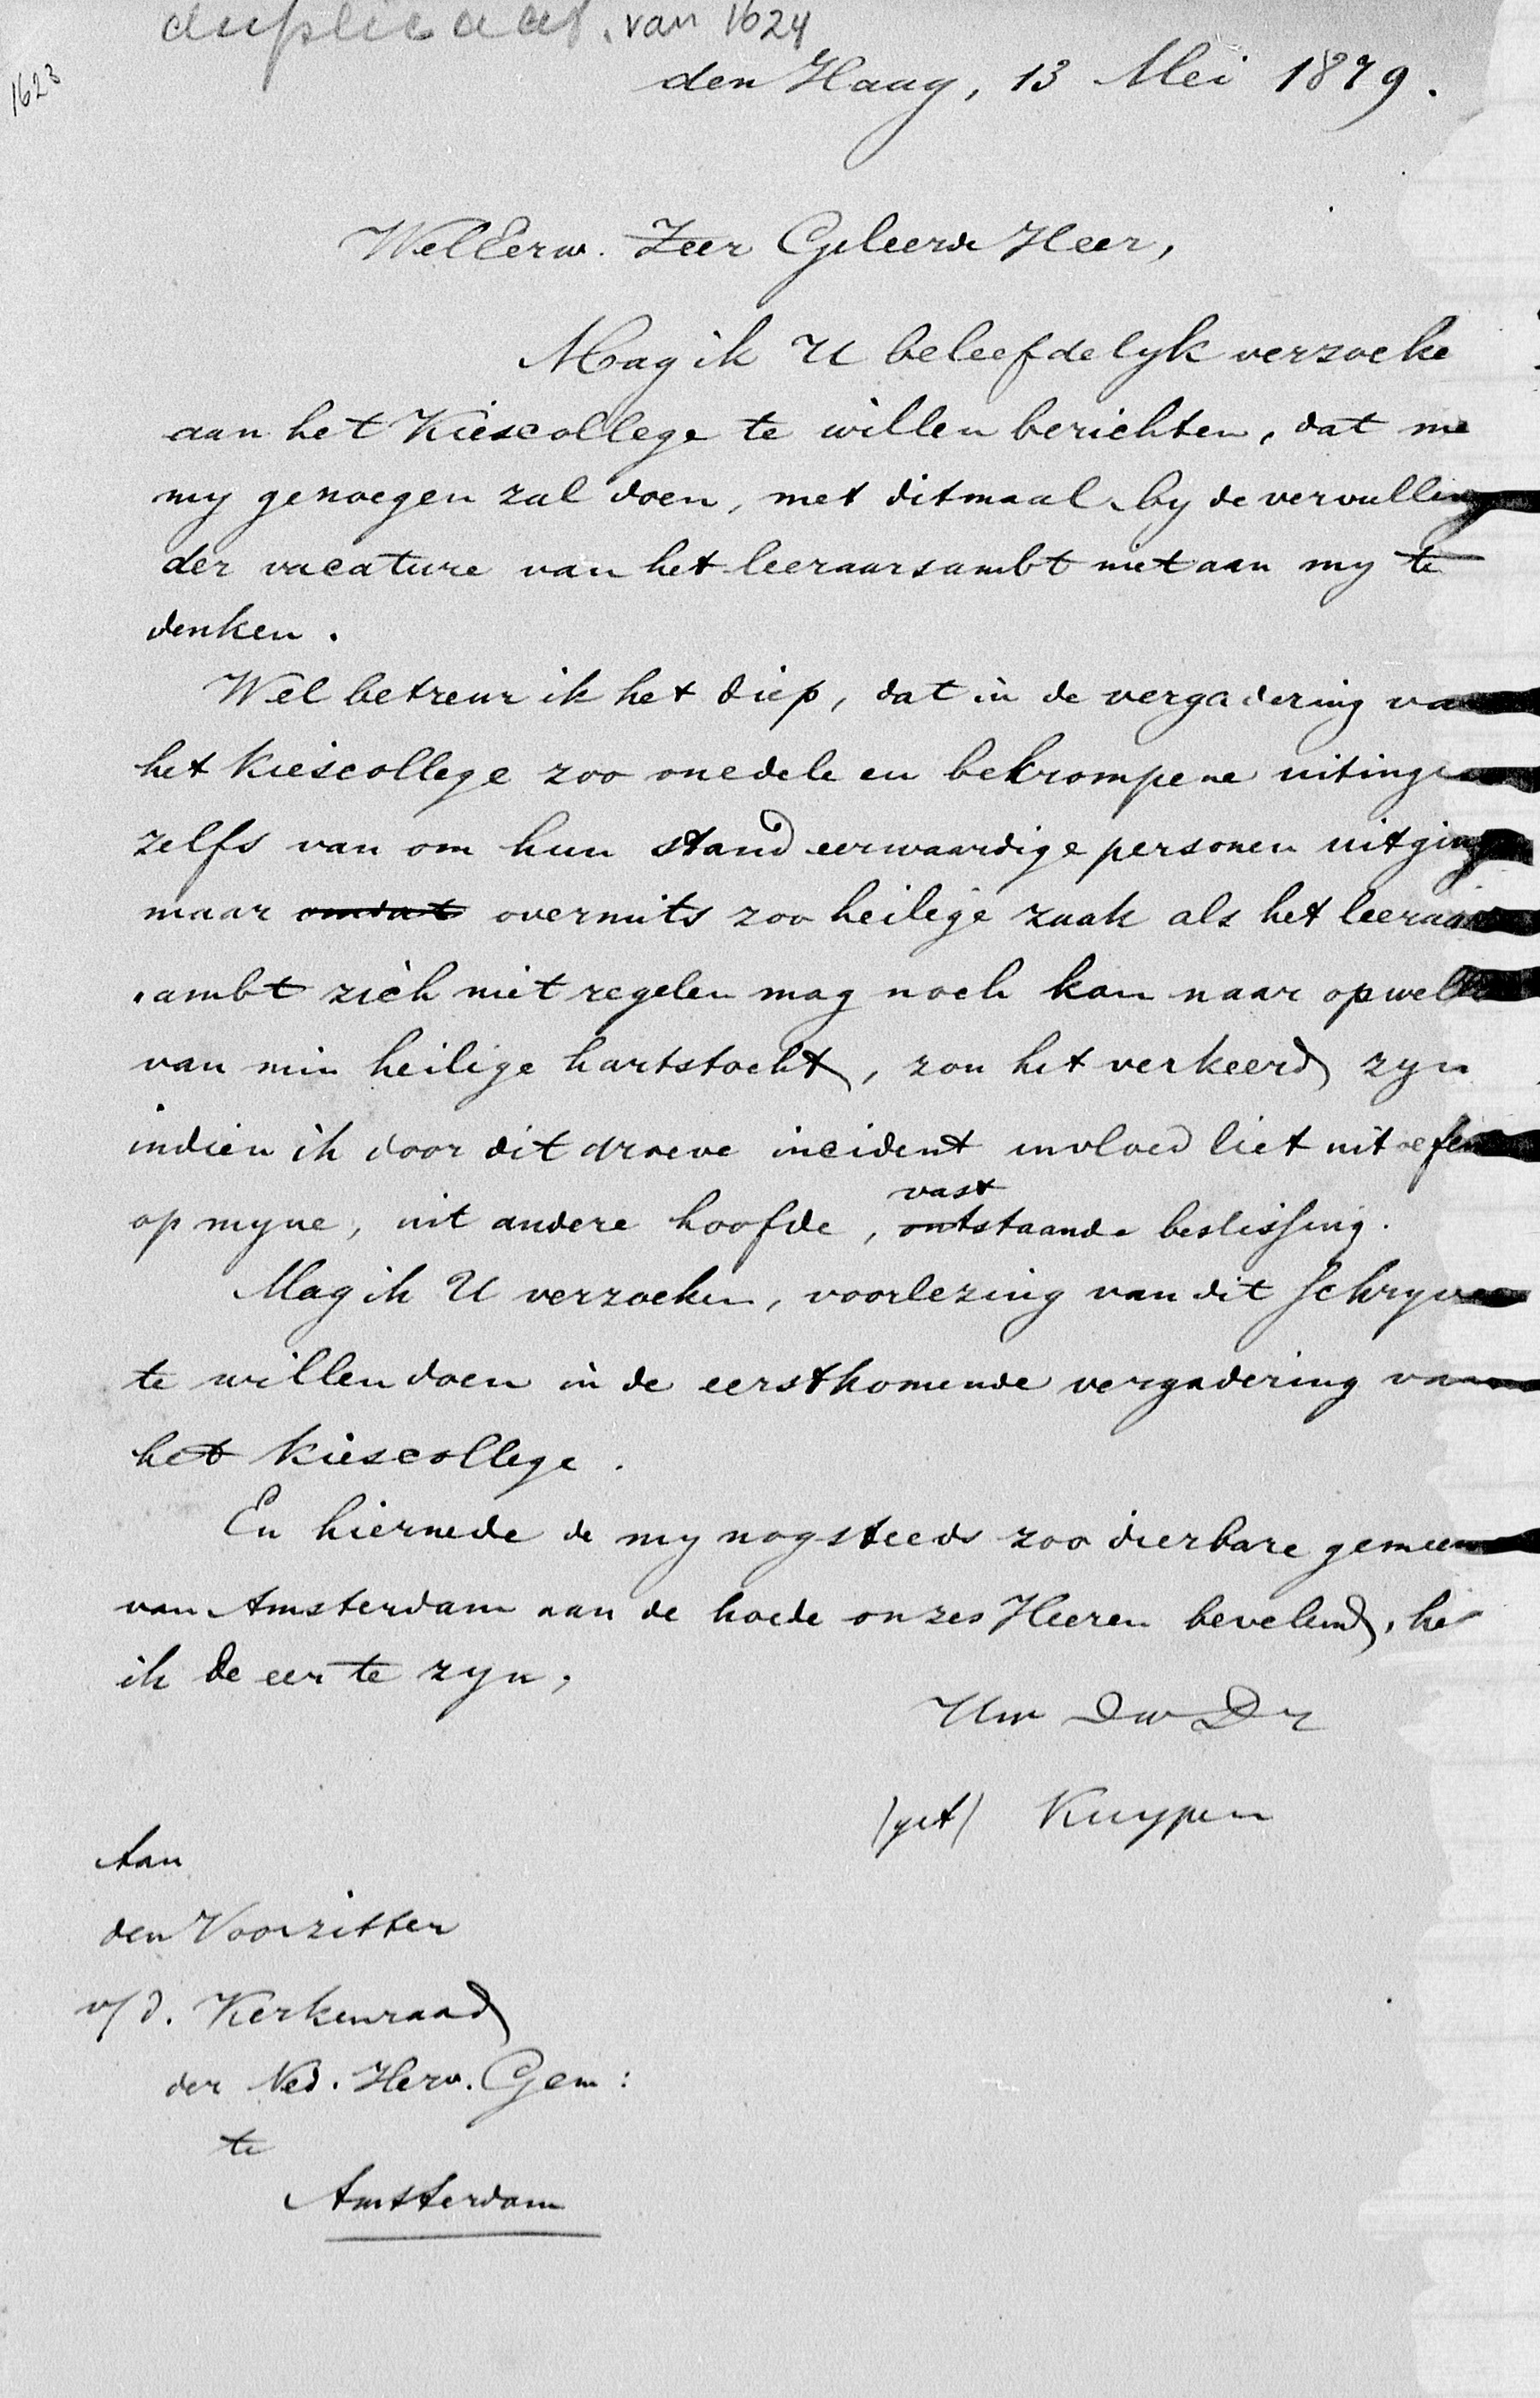 duplicaat. van 1624
1623
den Haag, 13 Mei 1879.
WelEerw. Zeer Geleerde Heer,
Mag ik U beleefdelyk verzoeke
aan het Kiescollege te willen berichten, dat me
my genoegen zal doen, met ditmaal by de vervulling
der vacature van het leeraarsambt niet aan my te
denken.
Wel betreur ik het diep, dat in de vergadering va
het Kiescollege zoo onedele en bekrompene uitinge
zelfs van om hun stand eerwaardige personen uitging
maar omdat overmits zoo heilige zaak als het leeraar
ambt zich niet regelen mag noch kan naar opwell
van min heilige hartstocht, zou het verkeerd zyn
indien ik door dit droeve incident invloed liet uitoefen
op myne, uit andere hoofde, vast
ontstaande beslissing.
Mag ik U verzoeken, voorlezing van dit schryven
te willen doen in de eerstkomende vergadering van
het Kiescollege.
En hiermede de my nog steeds zoo dierbare gemeen
van Amsterdam aan de hoede onzes Heeren bevelend, he
ik de eer te zyn,
Uw Dw Dr
(get) Kuyper
Aan
den Voorzitter
v/d. Kerkenraad
der Ned. Herv. Gem:
te
Amsterdam